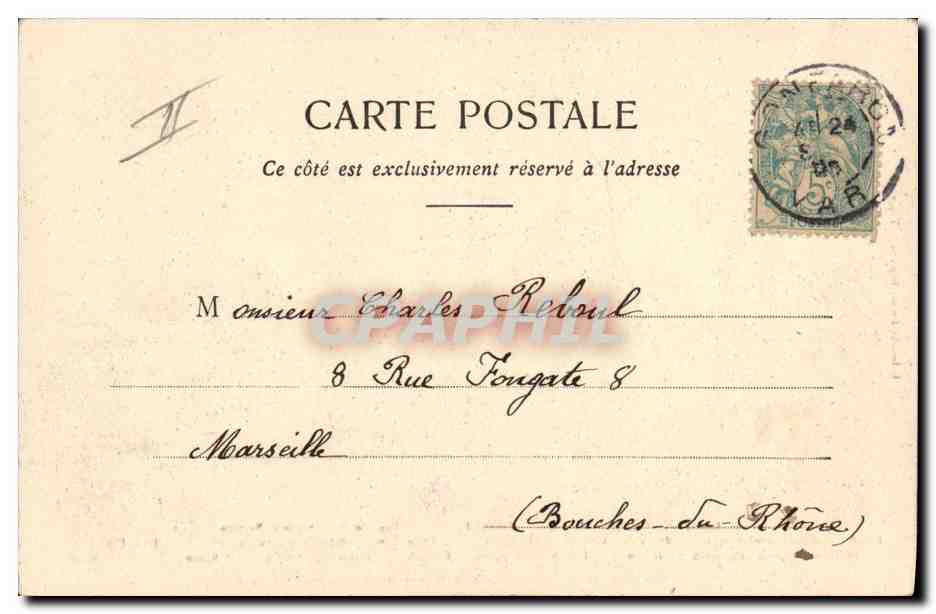 II
CARTE POSTALE
Ce côté est exclusivement réservé à l'adresse
5c
24
VAR
Monsieur Charles Reboul
CPAPHIL
8 Rue Fongate 8
Marseille
(Bouches-du-Rhône)